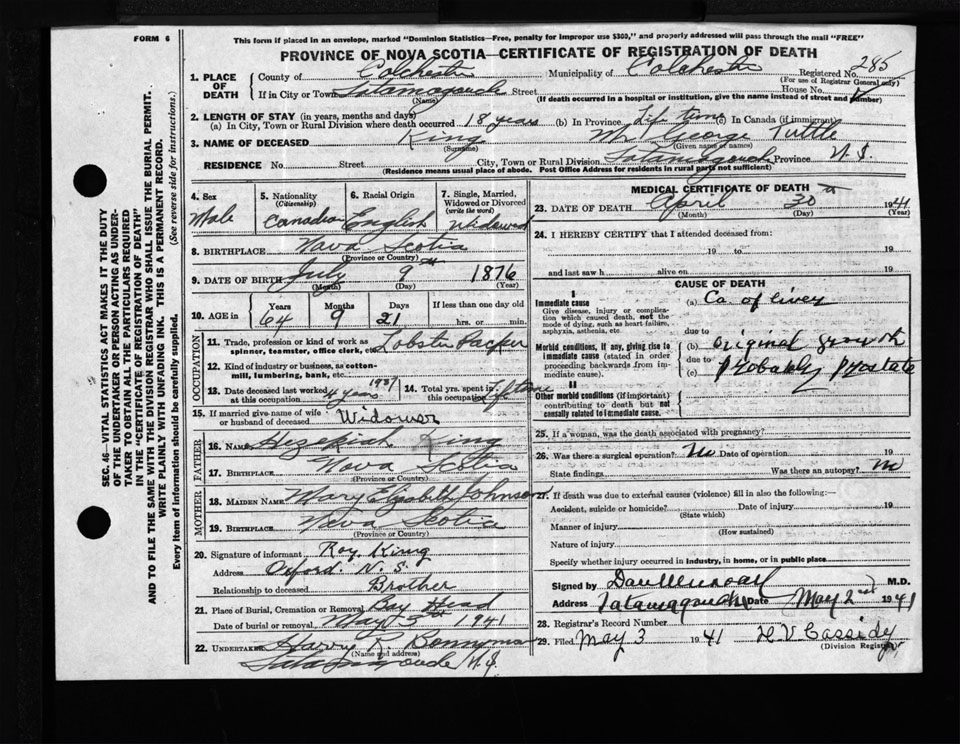 FORM 6
This form if placed in an envelope, marked "Dominion Statistics—Free, penalty for improper use $300," and properly addressed will pass through the mail "FREE"
PROVINCE OF NOVA SCOTIA—CERTIFICATE OF REGISTRATION OF DEATH
1. PLACE OF DEATH
County of Colchester Municipality of Colchester Registered No. 285
(For use of Registrar General only)
If in City or Town Tatamagouche Street House No.
(Name) (If death occurred in a hospital or institution, give the name instead of street and number)
2. LENGTH OF STAY (in years, months and days)
(a) In City, Town or Rural Division where death occurred 18 years (b) In Province Life time (c) In Canada (if immigrant)
3. NAME OF DECEASED King Mr George Tuttle
(Surname) (Given name or names)
RESIDENCE No. Street City, Town or Rural Division Tatamagouche Province N.S.
(Residence means usual place of abode. Post Office Address for residents in rural parts not sufficient)
4. Sex Male
5. Nationality (Citizenship) Canadian
6. Racial Origin English
7. Single, Married, Widowed or Divorced (write the word) Widowed
8. BIRTHPLACE Nova Scotia
(Province or Country)
9. DATE OF BIRTH July 9th 1876
(Month) (Day) (Year)
10. AGE in Years Months Days If less than one day old
64 9 21 hrs. or min.
OCCUPATION
11. Trade, profession or kind of work as spinner, teamster, office clerk, etc. Lobster Packer
12. Kind of industry or business, as cotton-mill, lumbering, bank, etc.
13. Date deceased last worked at this occupation 1937 4 years
14. Total yrs. spent in this occupation Life time
15. If married give name of wife or husband of deceased Widower
FATHER
16. Name Hezekiah King
17. BIRTHPLACE Nova Scotia
MOTHER
18. MAIDEN NAME Mary Elizabeth Johnson
19. BIRTHPLACE Nova Scotia
(Province or Country)
20. Signature of informant Roy King
Address Oxford N.S.
Relationship to deceased Brother
21. Place of Burial, Cremation or Removal Bay Head
Date of burial or removal May 1941
22. UNDERTAKER Harry R. Bonnyman
(Name and address)
Tatamagouche N.S.
MEDICAL CERTIFICATE OF DEATH
23. DATE OF DEATH April 30th 1941
(Month) (Day) (Year)
24. I HEREBY CERTIFY that I attended deceased from:
19 to 19
and last saw h alive on 19
CAUSE OF DEATH
I
Immediate cause
Give disease, injury or complication which caused death, not the mode of dying, such as heart failure, asphyxia, asthenia, etc.
(a) Ca. of liver
due to
Morbid conditions, if any, giving rise to immediate cause (stated in order proceeding backwards from immediate cause).
(b) original growth
due to
(c) probably prostate
II
Other morbid conditions (if important) contributing to death but not causally related to immediate cause.
25. If a woman, was the death associated with pregnancy?
26. Was there a surgical operation? No Date of operation 19
State findings Was there an autopsy? No
27. If death was due to external causes (violence) fill in also the following:—
Accident, suicide or homicide? Date of injury 19
(State which)
Manner of injury
(How sustained)
Nature of injury
Specify whether injury occurred in industry, in home, or in public place
Signed by Dan Murray M.D.
Address Tatamagouche Date May 2nd 1941
28. Registrar's Record Number
29. Filed May 3 1941 H V Cassidy
(Division Registrar)
SEC. 46—VITAL STATISTICS ACT MAKES IT THE DUTY
OF THE UNDERTAKER OR PERSON ACTING AS UNDER-
TAKER TO OBTAIN ALL THE PARTICULARS REQUIRED
IN THE "CERTIFICATE OF REGISTRATION OF DEATH"
AND TO FILE THE SAME WITH THE DIVISION REGISTRAR WHO SHALL ISSUE THE BURIAL PERMIT.
WRITE PLAINLY WITH UNFADING INK. THIS IS A PERMANENT RECORD.
Every item of information should be carefully supplied. (See reverse side for instructions.)